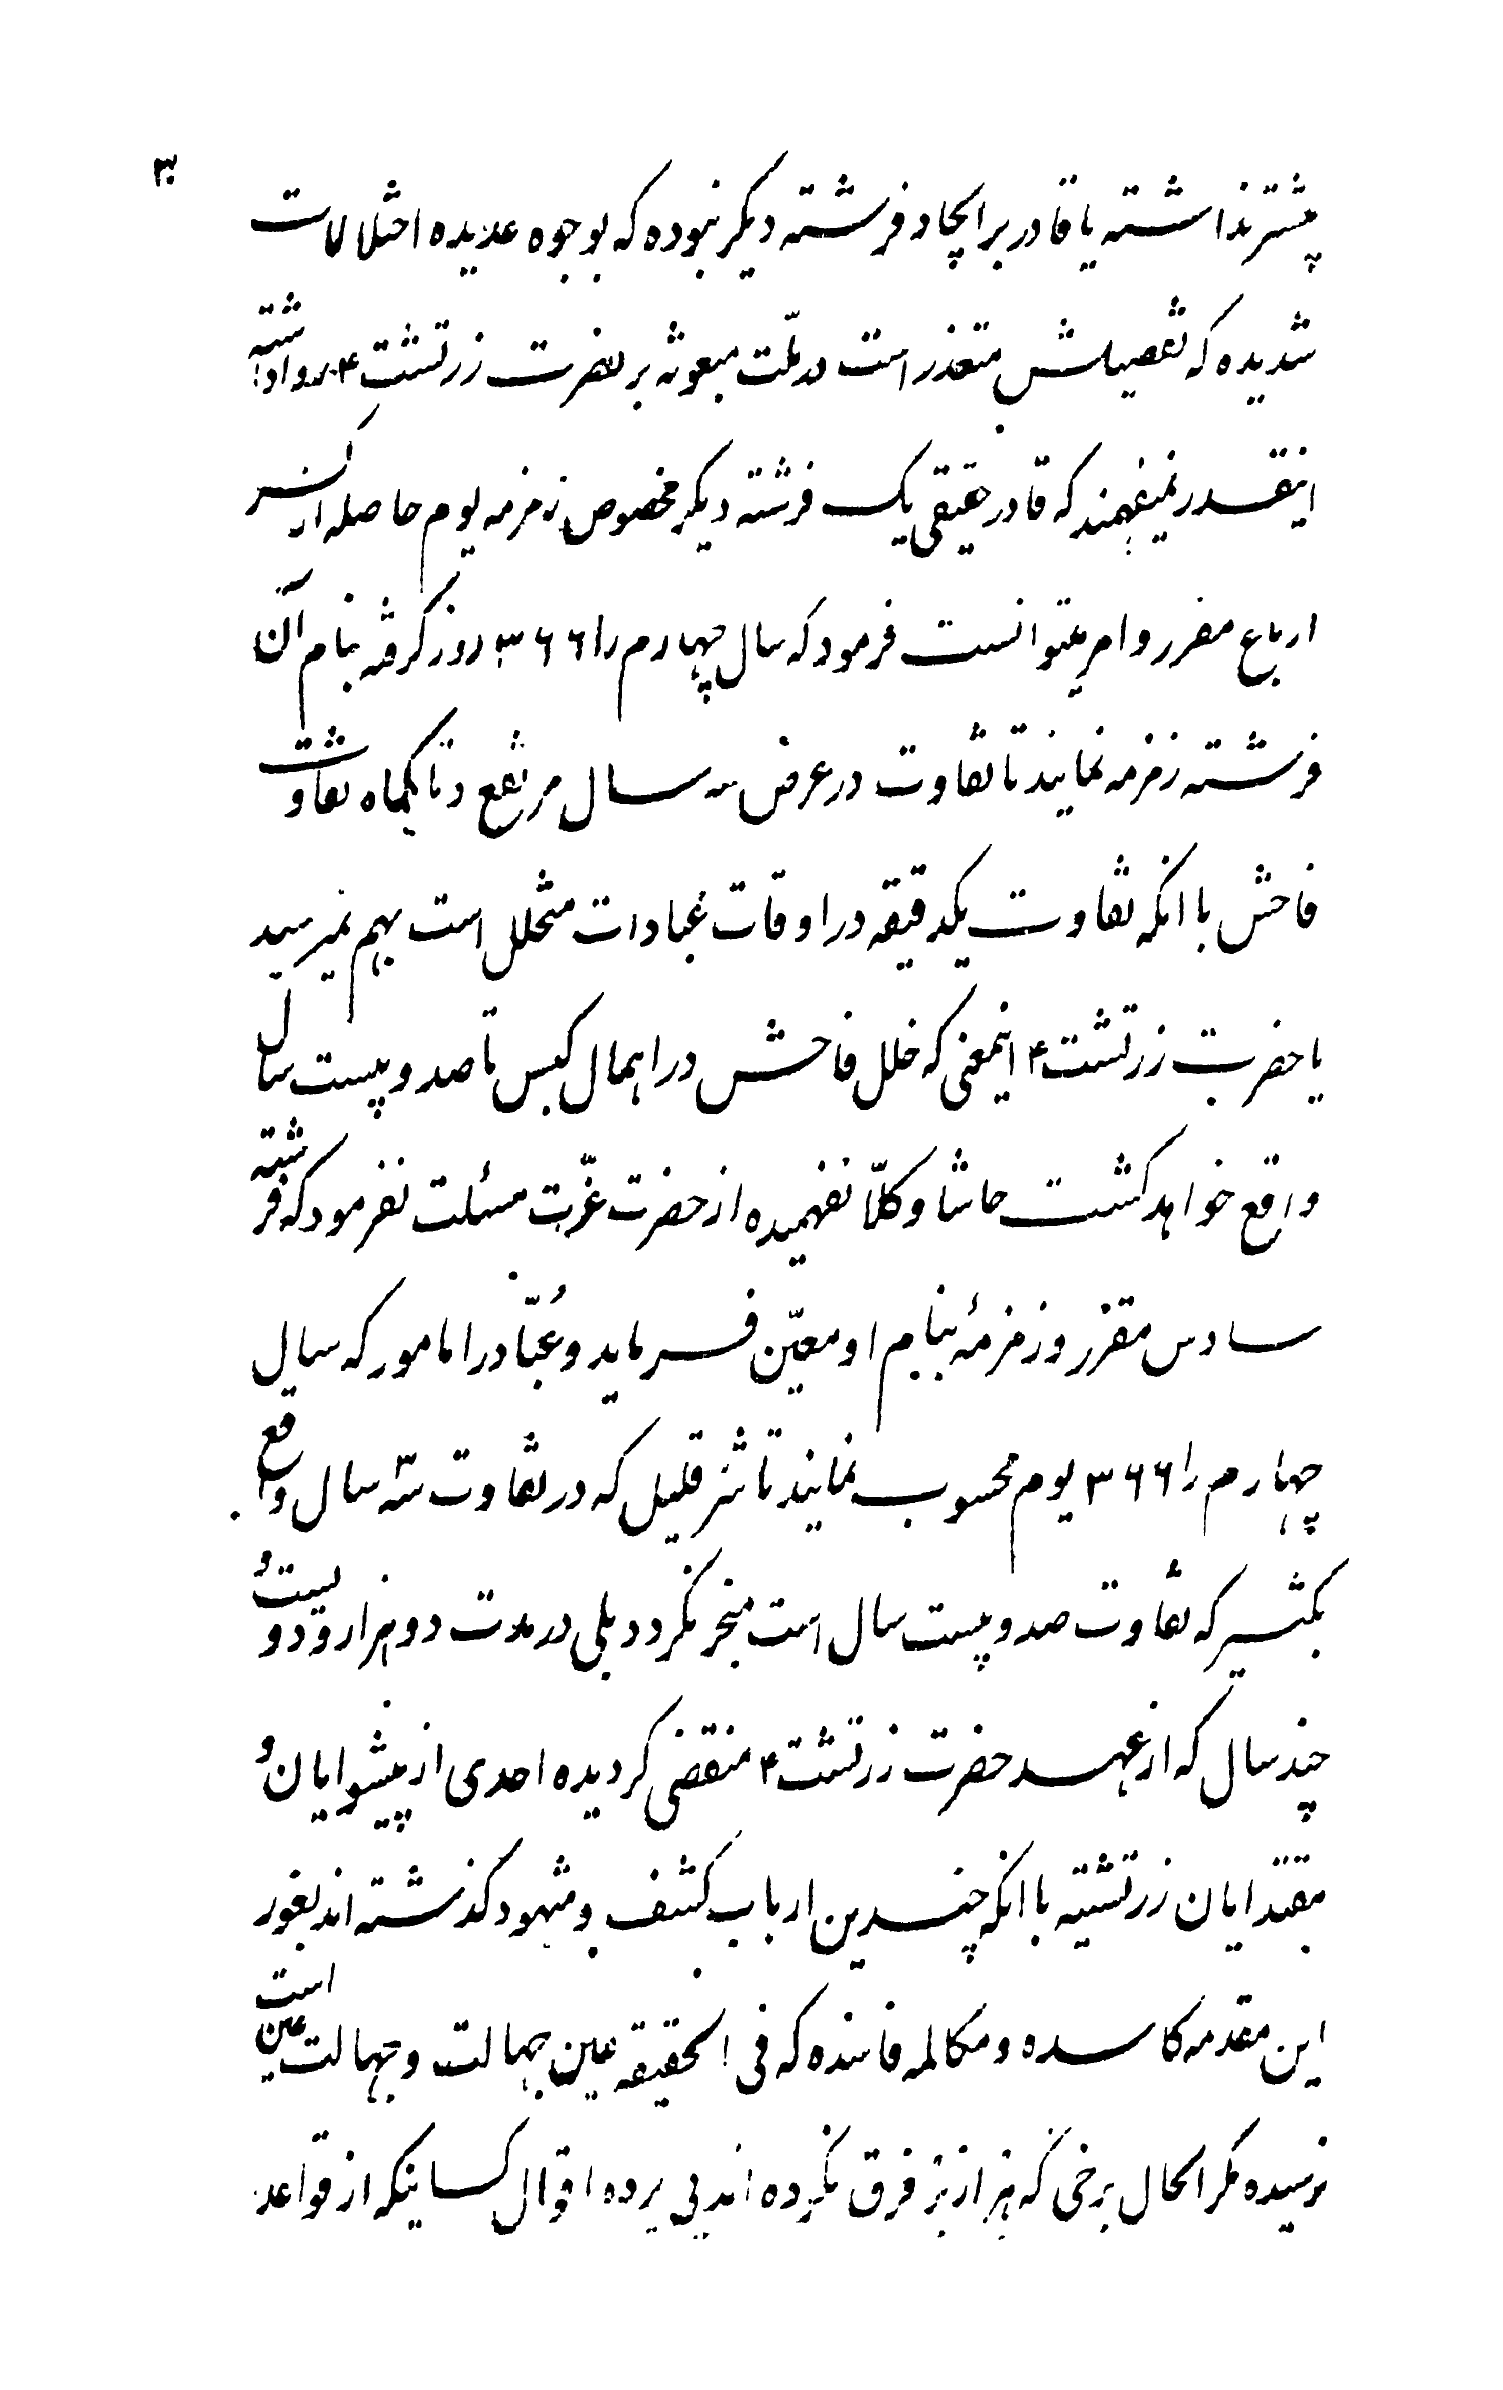 ۳۰
پیشتر نداشته یا قادر بر ایجاد فرشته دیکر نبوده که بوجوه عدیده اختلالات
شدیده که تفصیلش متعذر است در ملّت مبعوثه بر حضرت زرتشت ۴ روا داشته
اینقدر نمیفهمند که قادر حقیقی یک فرشته دیکر مخصوص زمزمه یوم حاصله از کسر
ارباع مقرر و امر میتوانست فرمود که سال چهارم را ۳۶۶ روز کرفته بنام آن
فرشته زمزمه نمایند تا تفاوت در عرض سه سال مرتفع و تا یکماه تفاوت
فاحش با انکه تفاوت یکدقیقه در اوقات عبادات متخلل است بهم نمیرسید
یا حضرت زرتشت ۴ اینمعنی که خلل فاحش در اهمال کبس تا صد و بیست سال
واقع خواهد کشت حاشا و کلّا نفهمیده از حضرت عزّت مسئلت نفرمود که فرشته
سادس مقرر و زمزمهٔ بنام او معیّن فرماید و عُبّاد را مامور که سال
چهارم را ۳۶۶ یوم محسوب نمایند تا شر قلیل که در تفاوت سه سال واقع
بکثیر که تفاوت صد و بیست سال است منجر نکردد بلی در مدت دو هزار و دویست و
چند سال که از عهد حضرت زرتشت ۴ منقضی کردیده احدی از پیشوایان و
مقتدایان زرتشتیه با انکه چندین ارباب کشف و شهود کذشته اند بغور
این مقدمه کاسده و مکالمه فاسده که فی الحقیقه عین جهالت و جهالت عین است
نرسیده مکر الحال برخی که هر از بر فرق نکرده اند پی برده اقوال کسانیکه از قواعد